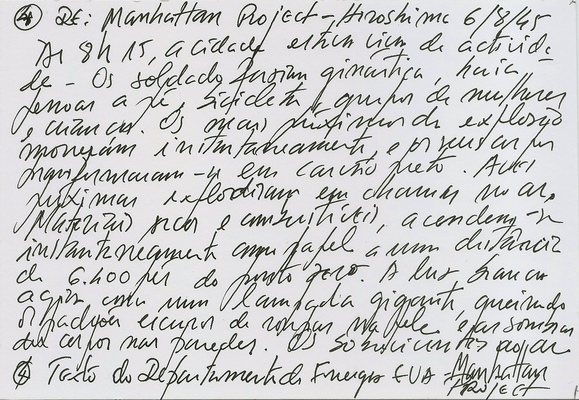 ④ RE: Manhattan Project - Hiroshima 6/8/45
Às 8h15, a cidade estava cheia de activida-
de - Os soldados faziam ginástica, havia
pessoas a pé, bicicleta, grupos de mulheres
e crianças. Os mais próximos da explosão
morreram instantaneamente, e os seus corpos
transformaram-se em carvão preto. Aves
próximas explodiram em chamas no ar.
Materiais secos e combustíveis, acendem-se
instantaneamente como papel a uma distância
de 6.400 pés do ponto zero. A luz branca
agiu como uma lâmpada gigante, queimando
os padrões escuros de roupas na pele e as sombras
dos corpos nas paredes. Os sobreviventes
④ Texto do Departamento de Energia EUA - Manhattan
PROJECT